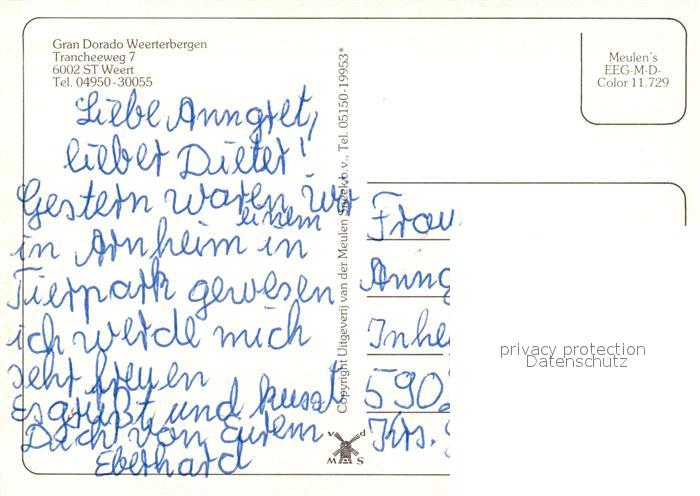 Gran Dorado Weerterbergen
Trancheeweg 7
6002 ST Weert
Tel. 04950-30055
Meulen's
EEG-M-D-
Color 11.729
Liebe Anngret,
lieber Dieter!
Gestern waren wir
in Arnheim in einem
Tierpark gewesen
ich werde mich
sehr freuen
Es grüßt und küsst
Dach von Eurem
Eberhard
Copyright Uitgeverij van der Meulen Sneek b.v., Tel. 05150-19953*
v d
M S
Frau
Anng
Inhe
590
Krs.
privacy protection
Datenschutz